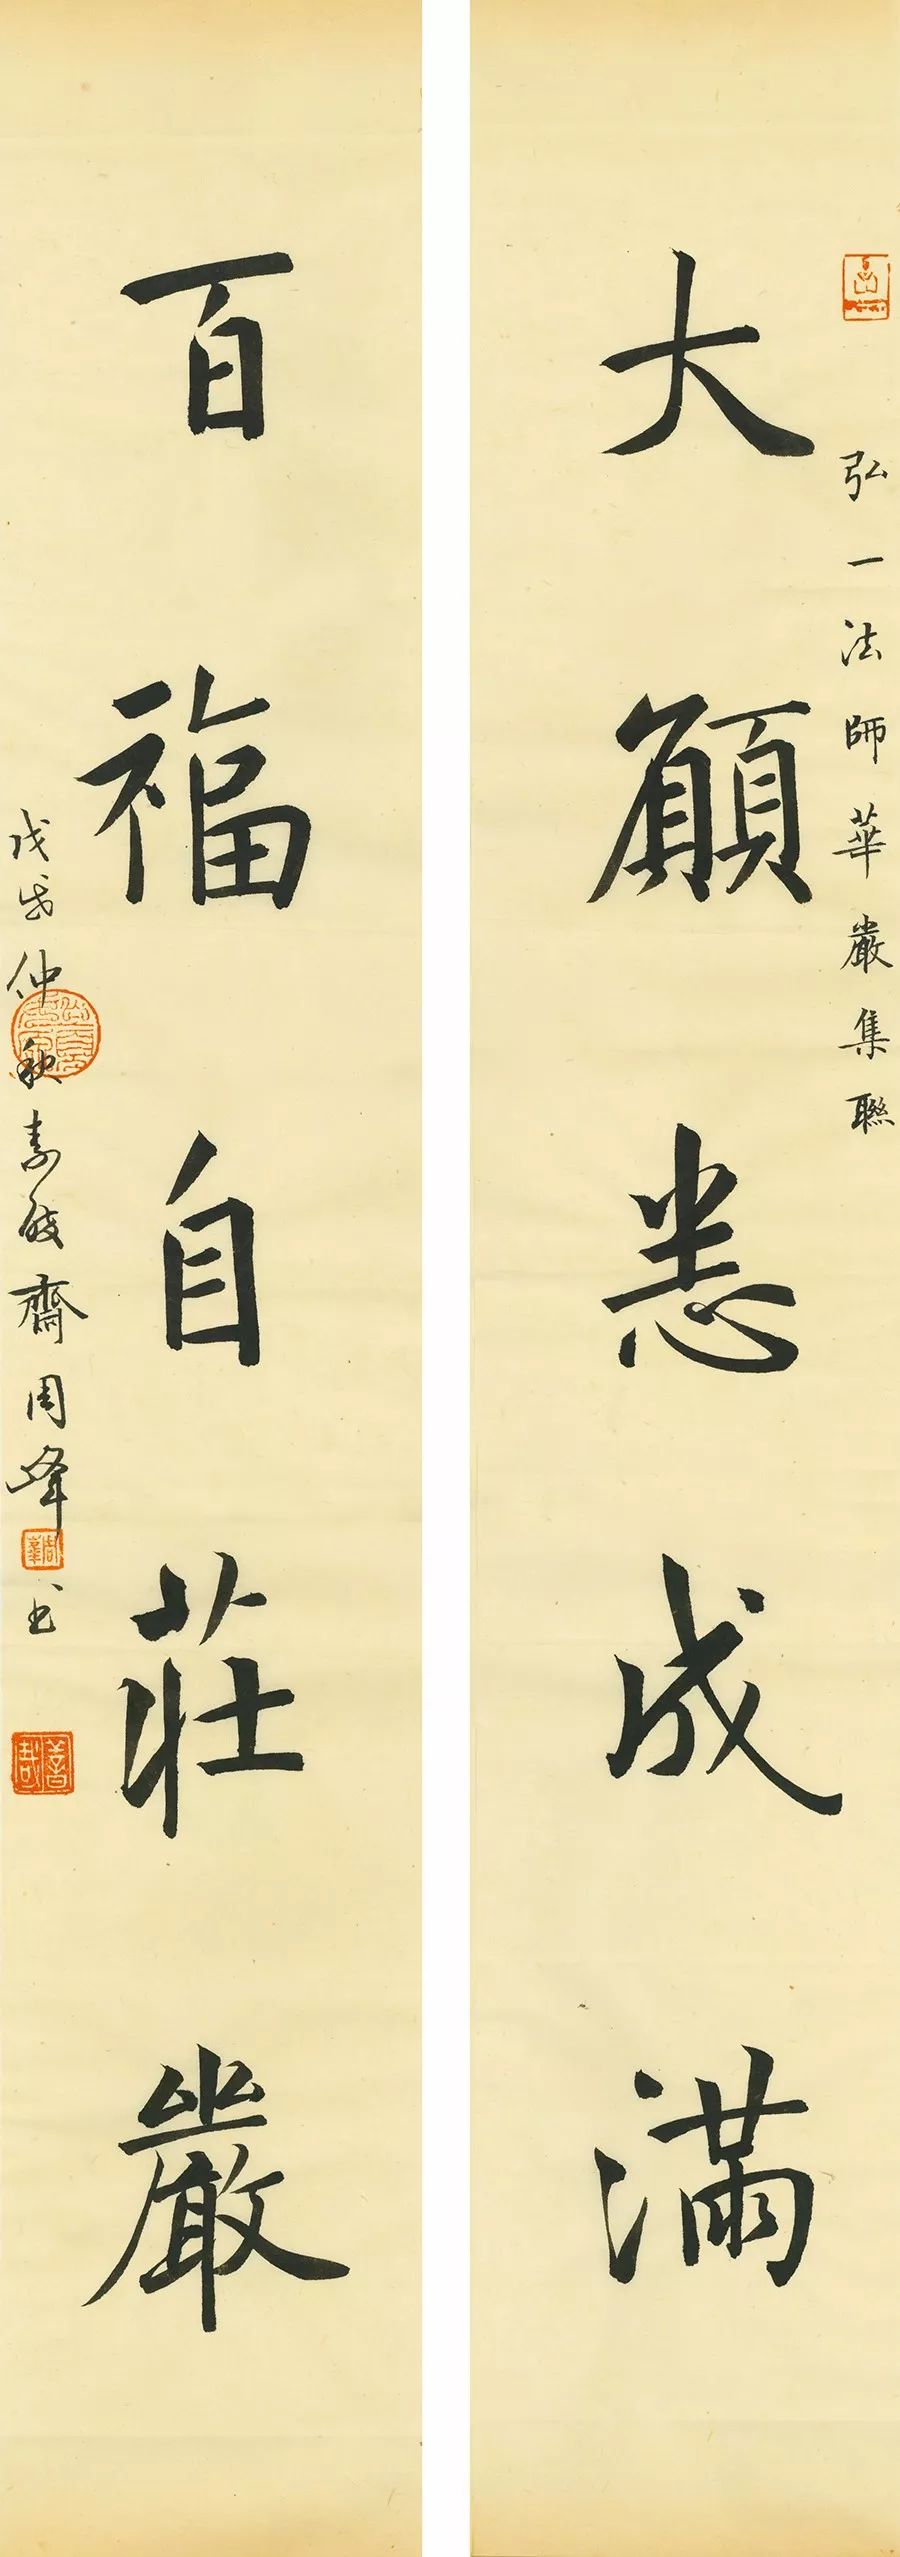 弘一法師華嚴集聯
大願悉成滿
百福自莊嚴
戊戌仲秋素履齋周峰书